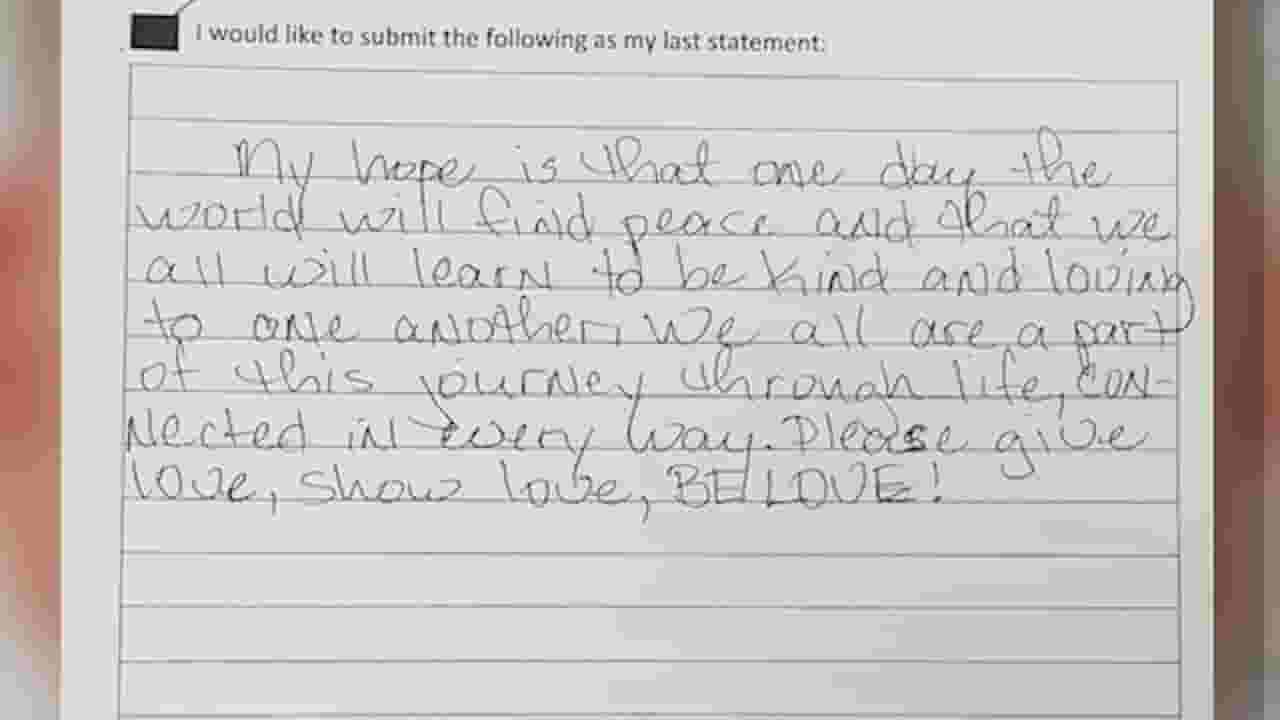 I would like to submit the following as my last statement:
My hope is that one day the
world will find peace and that we
all will learn to be kind and loving
to one another, We all are a part
of this journey through life, CON-
Nected in every way. Please give
love, show love, BE LOVE!